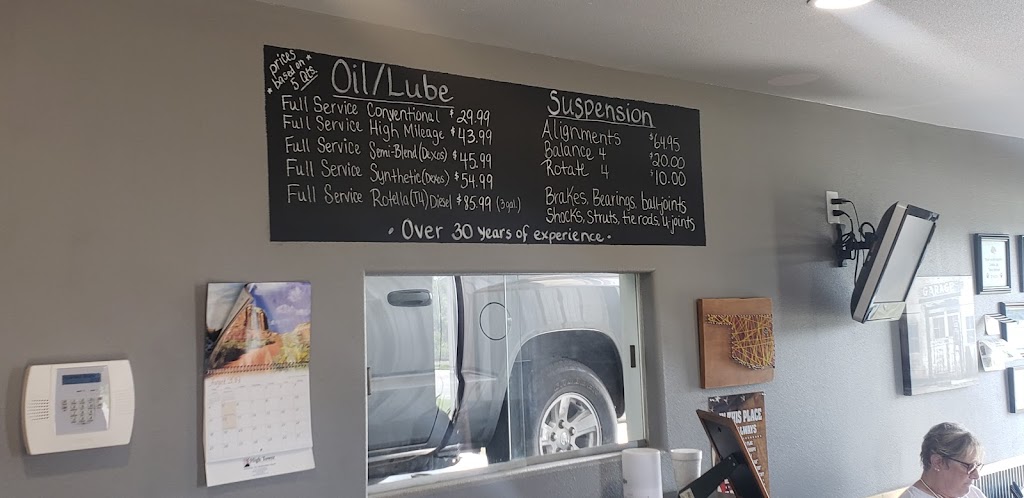 * prices
based on *
* 5 Qts.
Oil/Lube
Full Service Conventional $29.99
Full Service High Mileage $43.99
Full Service Semi-Blend (Dexos) $45.99
Full Service Synthetic (Dexos) $54.99
Full Service Rotella (T4) Diesel $85.99 (3 gal.)
Suspension
Alignments $64.95
Balance 4 $20.00
Rotate 4 $10.00
Brakes, Bearings, ball-joints
Shocks, Struts, tie rods, u-joints
• Over 30 years of experience •
GARAGE
THIS PLACE